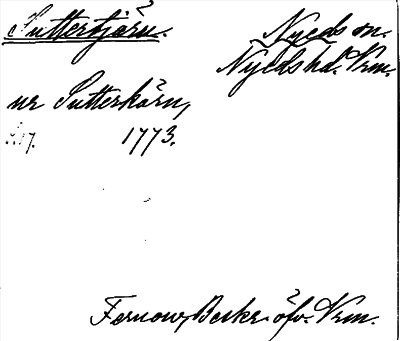 Suttertjärn.
Nyeds sn.
Nyeds hd. Vrm.
ur Sutterkärn,
s. 17. 1773.
Fernow, Beskr. öfv. Vrm.